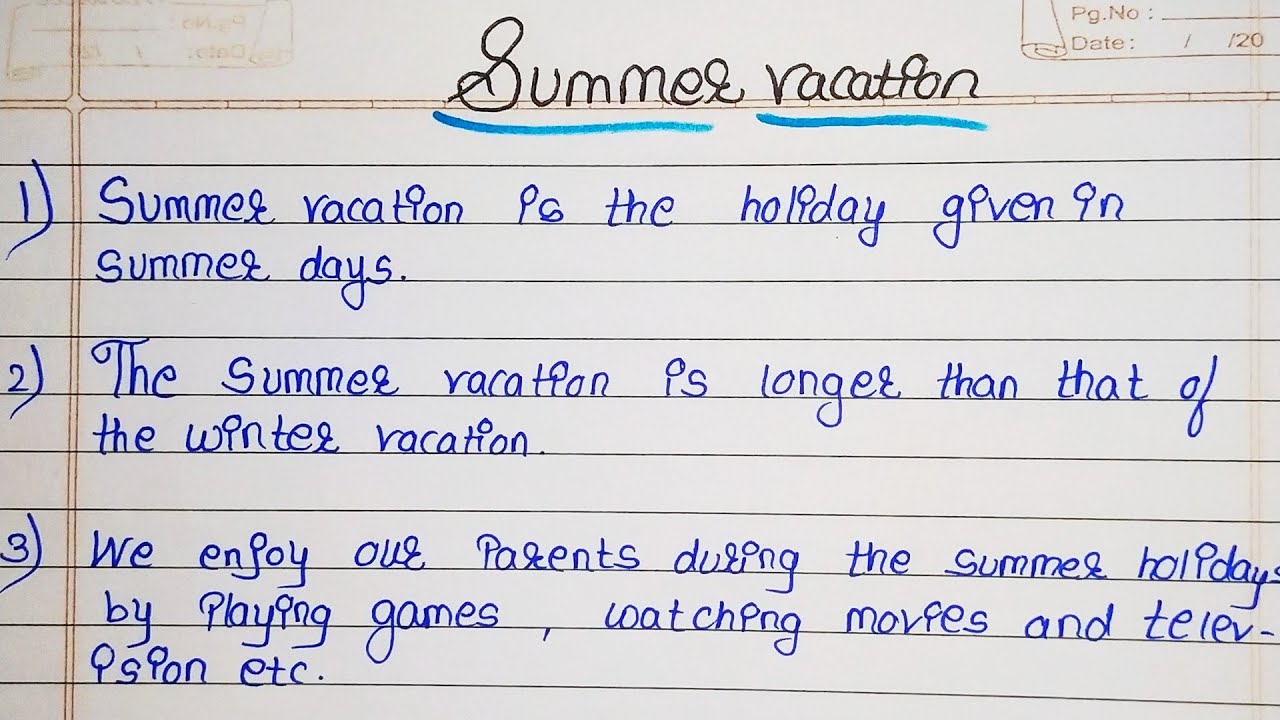 Pg.No :
Date: / /20
Summer vacation
1) Summer vacation is the holiday given in
summer days.
2) The Summer vacation is longer than that of
the winter vacation.
3) We enjoy our Parents during the summer holidays
by Playing games , watching movies and telev-
ision etc.